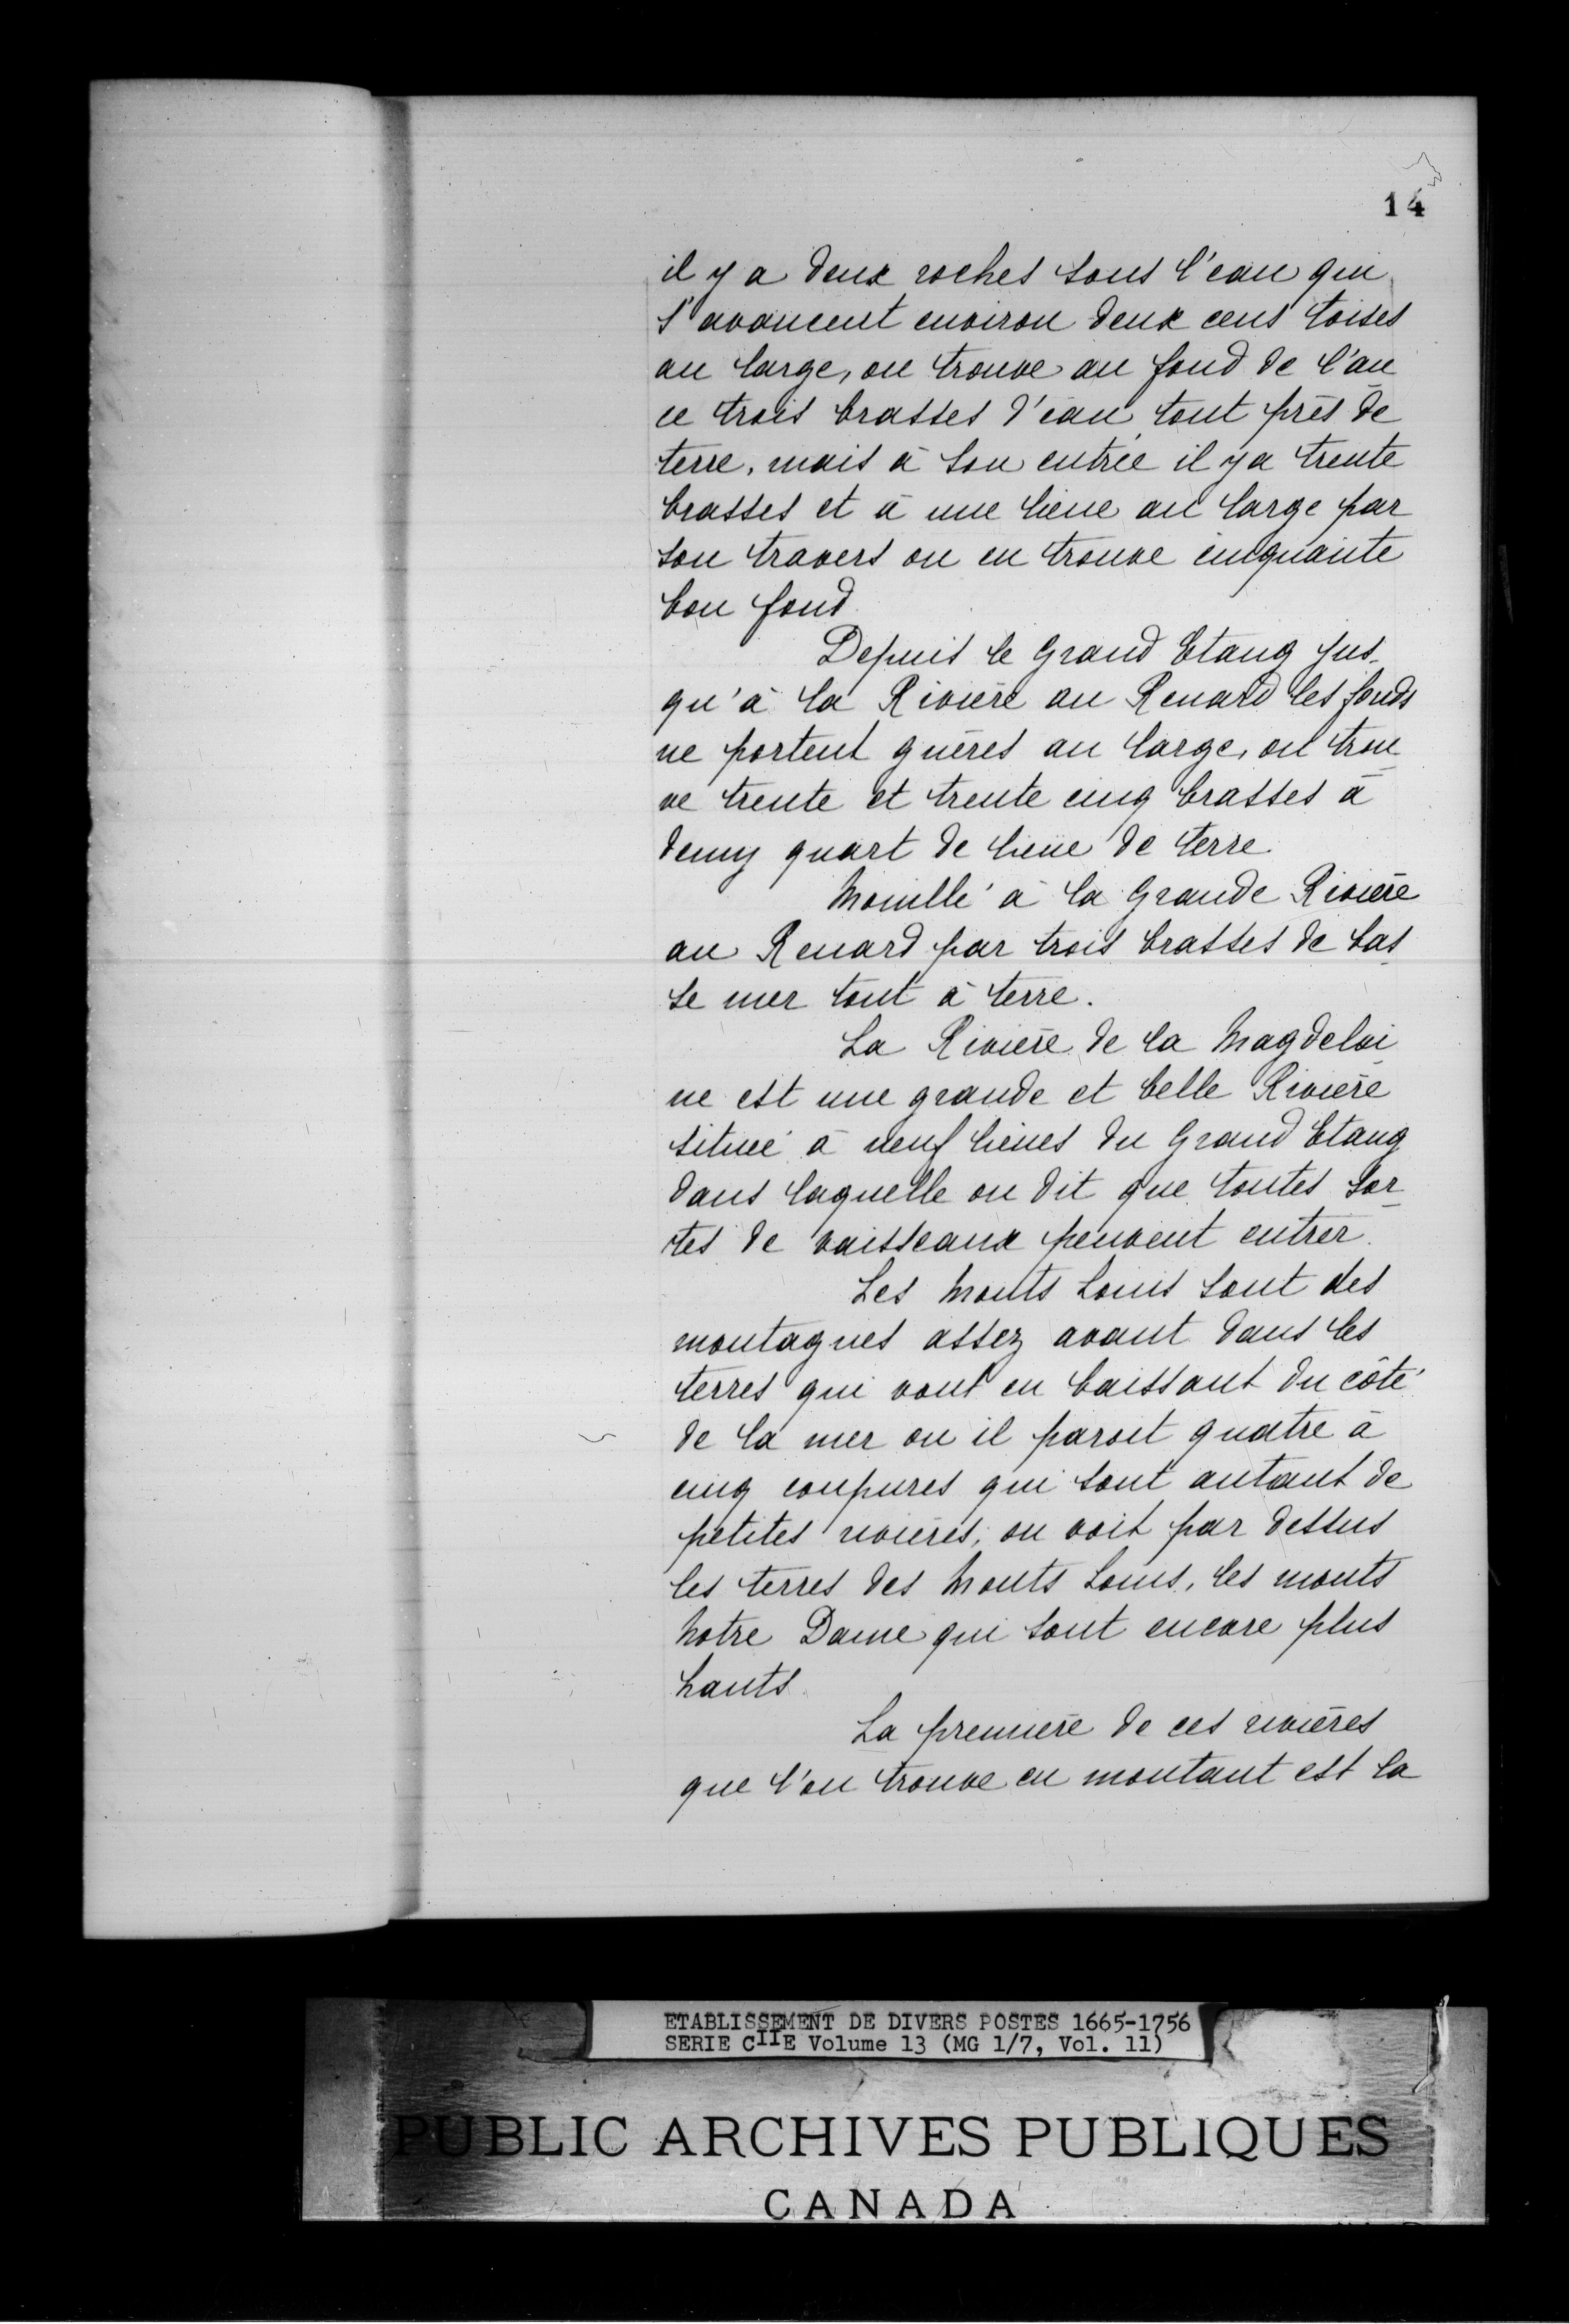 14
il y a deux roches sous l'eau qui
s'avancent environ deux cens toises
au large, on trouve au fond de l'an
ce trois brasses d'eau tout près de
terre, mais à son entrée il y a trente
brasses et à une lieue au large par
son travers on en trouve cinquante
bon fond
Depuis le Grand Etang jus-
qu'à la Rivière au Renard les fonds
ne portent guères au large, on trou
ve trente et trente cinq brasses à
demy quart de lieue de terre
Mouillé à la Grande Rivière
au Renard par trois brasses de bas
se mer tout à terre.
La Rivière de la Magdelai
ne est une grande et belle Rivière
située à neuf lieues du Grand Etang
dans laquelle on dit que toutes sor
tes de vaisseaux peuvent entrer.
Les Monts Louis sont des
montagnes assez avant dans les
terres qui vont en baissant du côté
de la mer ou il paroit quatre à
cinq coupures qui sont autant de
petites rivières, on voit par dessus
les terres des Monts Louis, les monts
Notre Dame qui sont encore plus
hauts.
La première de ces rivières
que l'on trouve en montant est la
ETABLISSEMENT DE DIVERS POSTES 1665-1756
SERIE CIIE Volume 13 (MG 1/7, Vol. 11)
PUBLIC ARCHIVES PUBLIQUES
CANADA